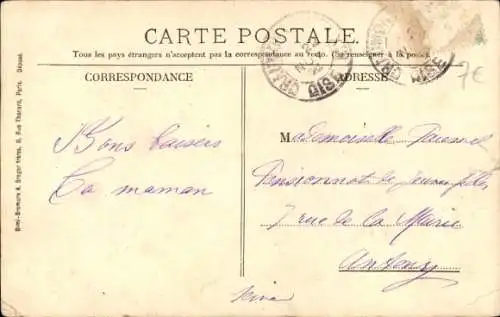 CARTE POSTALE
Tous les pays étrangers n'acceptent pas la correspondance au recto. (Se renseigner à la poste).
CORRESPONDANCE
ADRESSE
7€
Bons baisers
Ta maman
Mademoiselle
Pensionnat de jeunes filles
7 rue de la Mairie
Antony
Seine